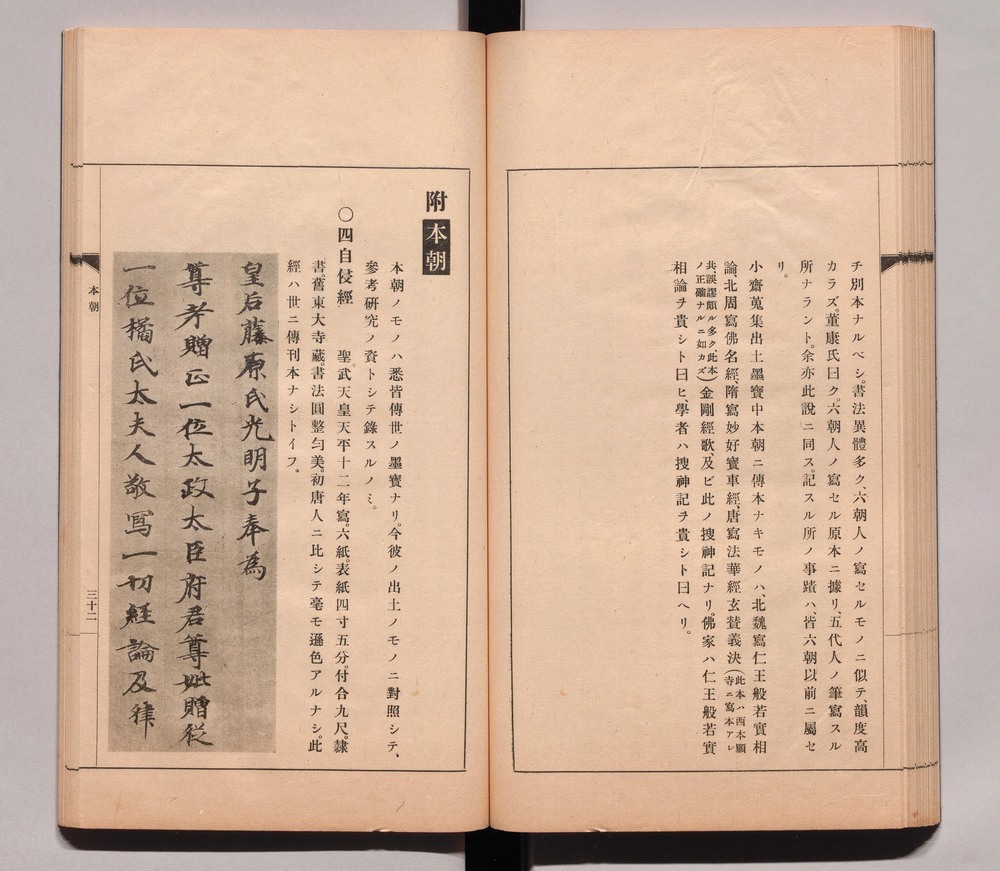 チ別本ナルベシ。書法異體多ク、六朝人ノ寫セルモノニ似テ、韻度高
カラズ。董康氏曰ク。六朝人ノ寫セル原本ニ據リ、五代人ノ筆寫スル
所ナラント。余亦此說ニ同ス。記スル所ノ事蹟ハ、皆六朝以前ニ屬セ
リ。
小齋蒐集出土墨寶中本朝ニ傳本ナキモノハ、北魏寫仁王般若實相
論、北周寫佛名經、隋寫妙好寶車經、唐寫法華經玄贊義決(此本ハ西本願寺ニ寫本アレ
共、誤謬頗ル多ク此本ノ正確ナルニ如カズ)金剛經歌及ビ此ノ搜神記ナリ。佛家ハ仁王般若實
相論ヲ貴シト曰ヒ、學者ハ搜神記ヲ貴シト曰ヘリ。
附本朝
本朝ノモノハ悉皆傳世ノ墨寶ナリ。今彼ノ出土ノモノニ對照シテ、
參考硏究ノ資トシテ錄スルノミ。
〇四自侵經 聖武天皇天平十二年寫。六紙。表紙四寸五分。付合九尺。隸
書。舊東大寺藏。書法圓整勻美。初唐人ニ比シテ毫モ遜色アルナシ。此
經ハ世ニ傳刊本ナシトイフ。
皇后藤原氏光明子奉為
尊考贈正一位太政太臣府君尊妣贈從
一位橘氏太夫人敬寫一切經論及律
本朝
三十二